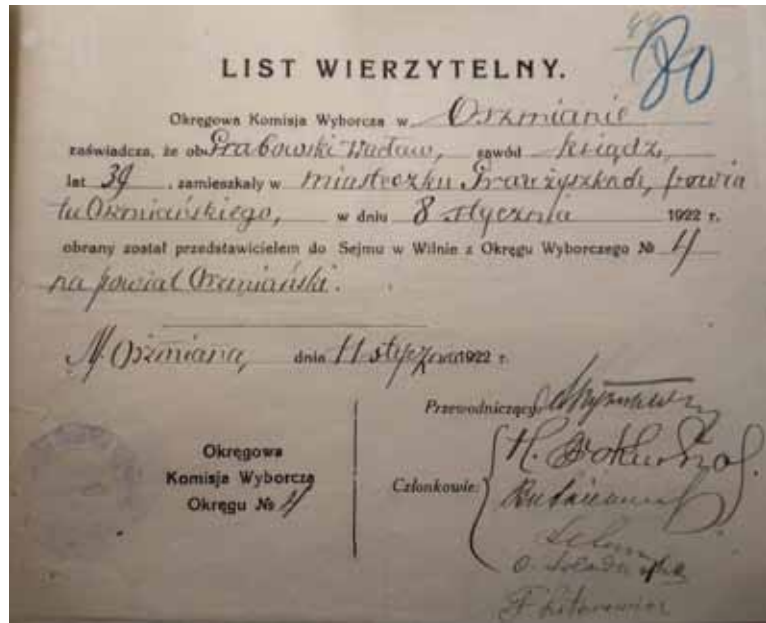 80
LIST WIERZYTELNY.
Okręgowa Komisja Wyborcza w Oszmianie
zaświadcza, że ob. Grabowski Wacław, zawód ksiądz,
lat 39, zamieszkały w miasteczku powia
tu Oszmiańskiego, w dniu 8 stycznia 1922 r.
obrany został przedstawicielem do Sejmu w Wilnie z Okręgu Wyborczego № 4
na powiat Oszmiański.
M. Oszmiana, dnia 11 stycznia 1922 r.
Przewodniczący:
Okręgowa
Komisja Wyborcza
Okręgu № 4
Członkowie: